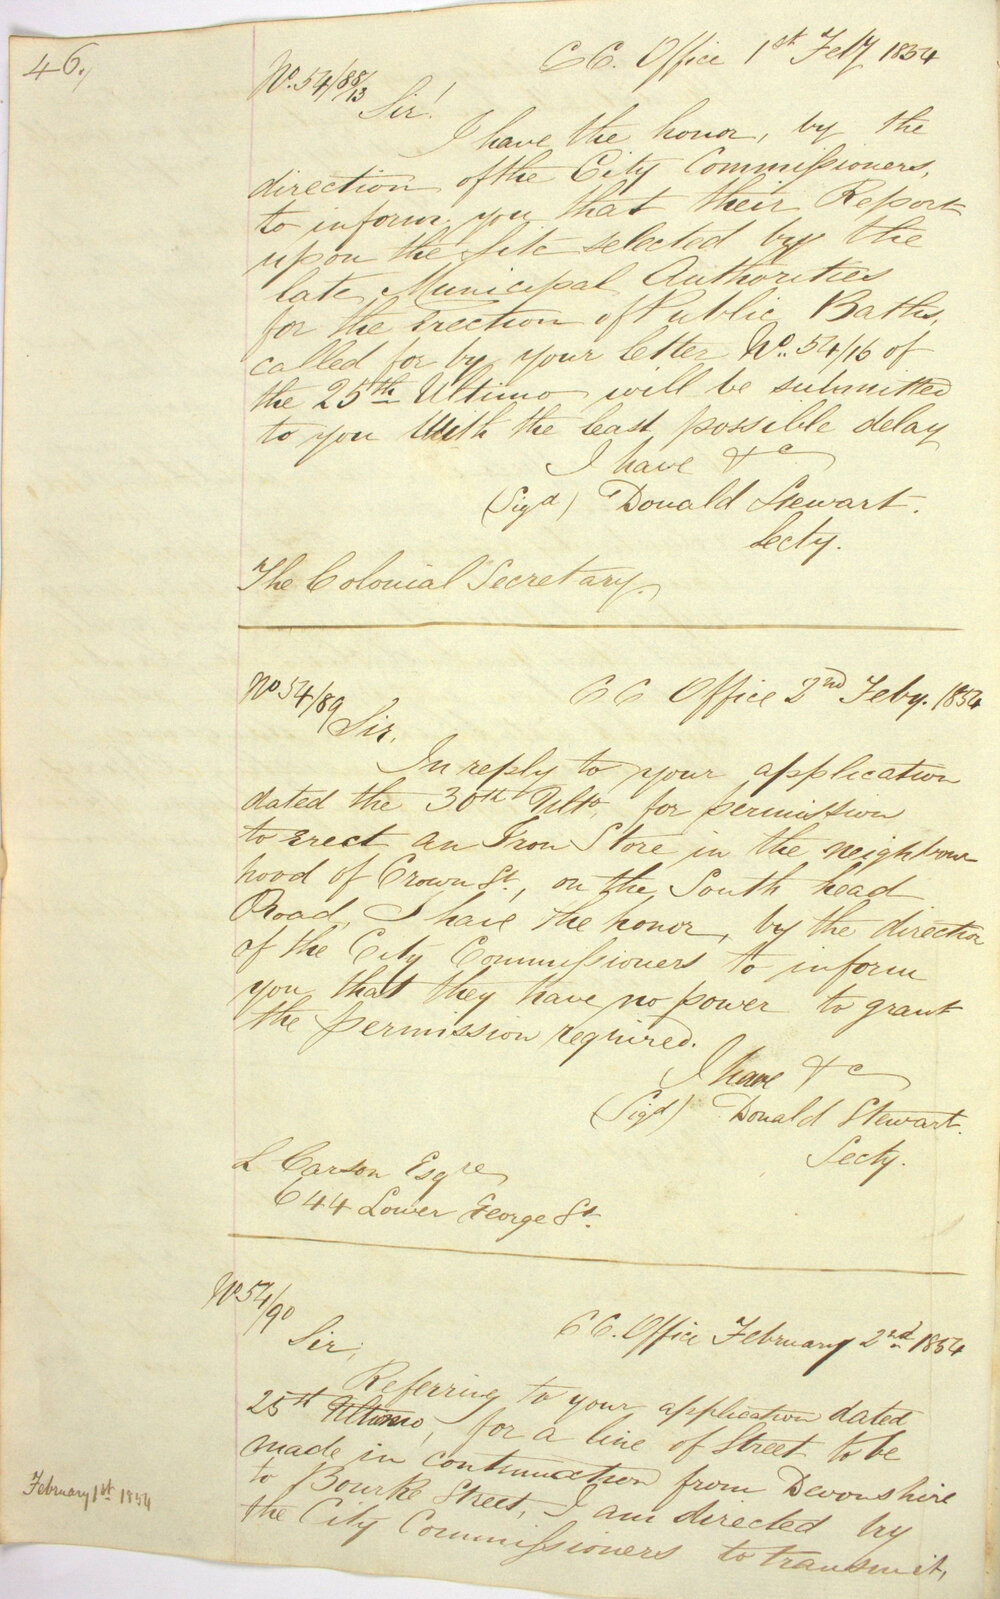 46.
C C. Office 1st Feby 1854
No. 54/88/13
Sir!
I have the honor, by the
direction of the City Commissioners,
to inform you that their Report
upon the Site selected by the
late Municipal Authorities
for the Erection of Public Baths,
called for by your letter No. 54/16 of
the 25th Ultimo will be submitted
to you With the least possible delay
I have &c
(Sigd) Donald Stewart.
Secty.
The Colonial Secretary.
No 54/89
C C Office 2nd Feby. 1854
Sir,
In reply to your application
dated the 30th Ulto, for permission
to Erect an Iron Store in the neighbour
hood of Crown St, on the South head
Road, I have the honor, by the direction
of the City Commissioners to inform
you that they have no power to grant
the permission required.
I have &c
(Sigd) Donald Stewart.
Secty.
L Carson Esqre
644 Lower George St.
No 54/90
C C. Office February 2nd 1854
Sir,
Referring to your application dated
25th Ultimo, for a line of Street to be
made in continuation from Devonshire
to Bourke Street, I am directed by
the City Commissioners to transmit,
February 1st 1854